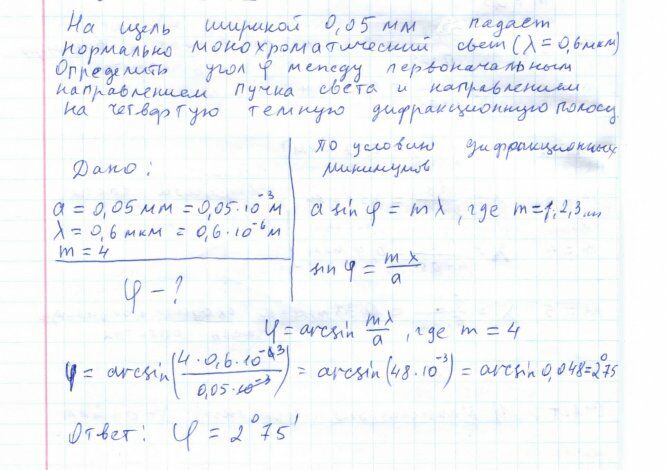 На щель шириной 0,05 мм падает
нормально монохроматический свет (λ = 0,6 мкм)
Определить угол φ между первоначальным
направлением пучка света и направлением
на четвертую темную дифракционную полосу.
Дано:
a = 0,05 мм = 0,05·10⁻³ м
λ = 0,6 мкм = 0,6·10⁻⁶ м
m = 4
φ - ?
по условию дифракционных
минимумов
a sin φ = mλ, где m=1,2,3...
sin φ = mλ/a
φ = arcsin mλ/a, где m = 4
φ = arcsin(4·0,6·10⁻³/0,05) = arcsin(48·10⁻³) = arcsin 0,048 = 2°75
Ответ: φ = 2°75'